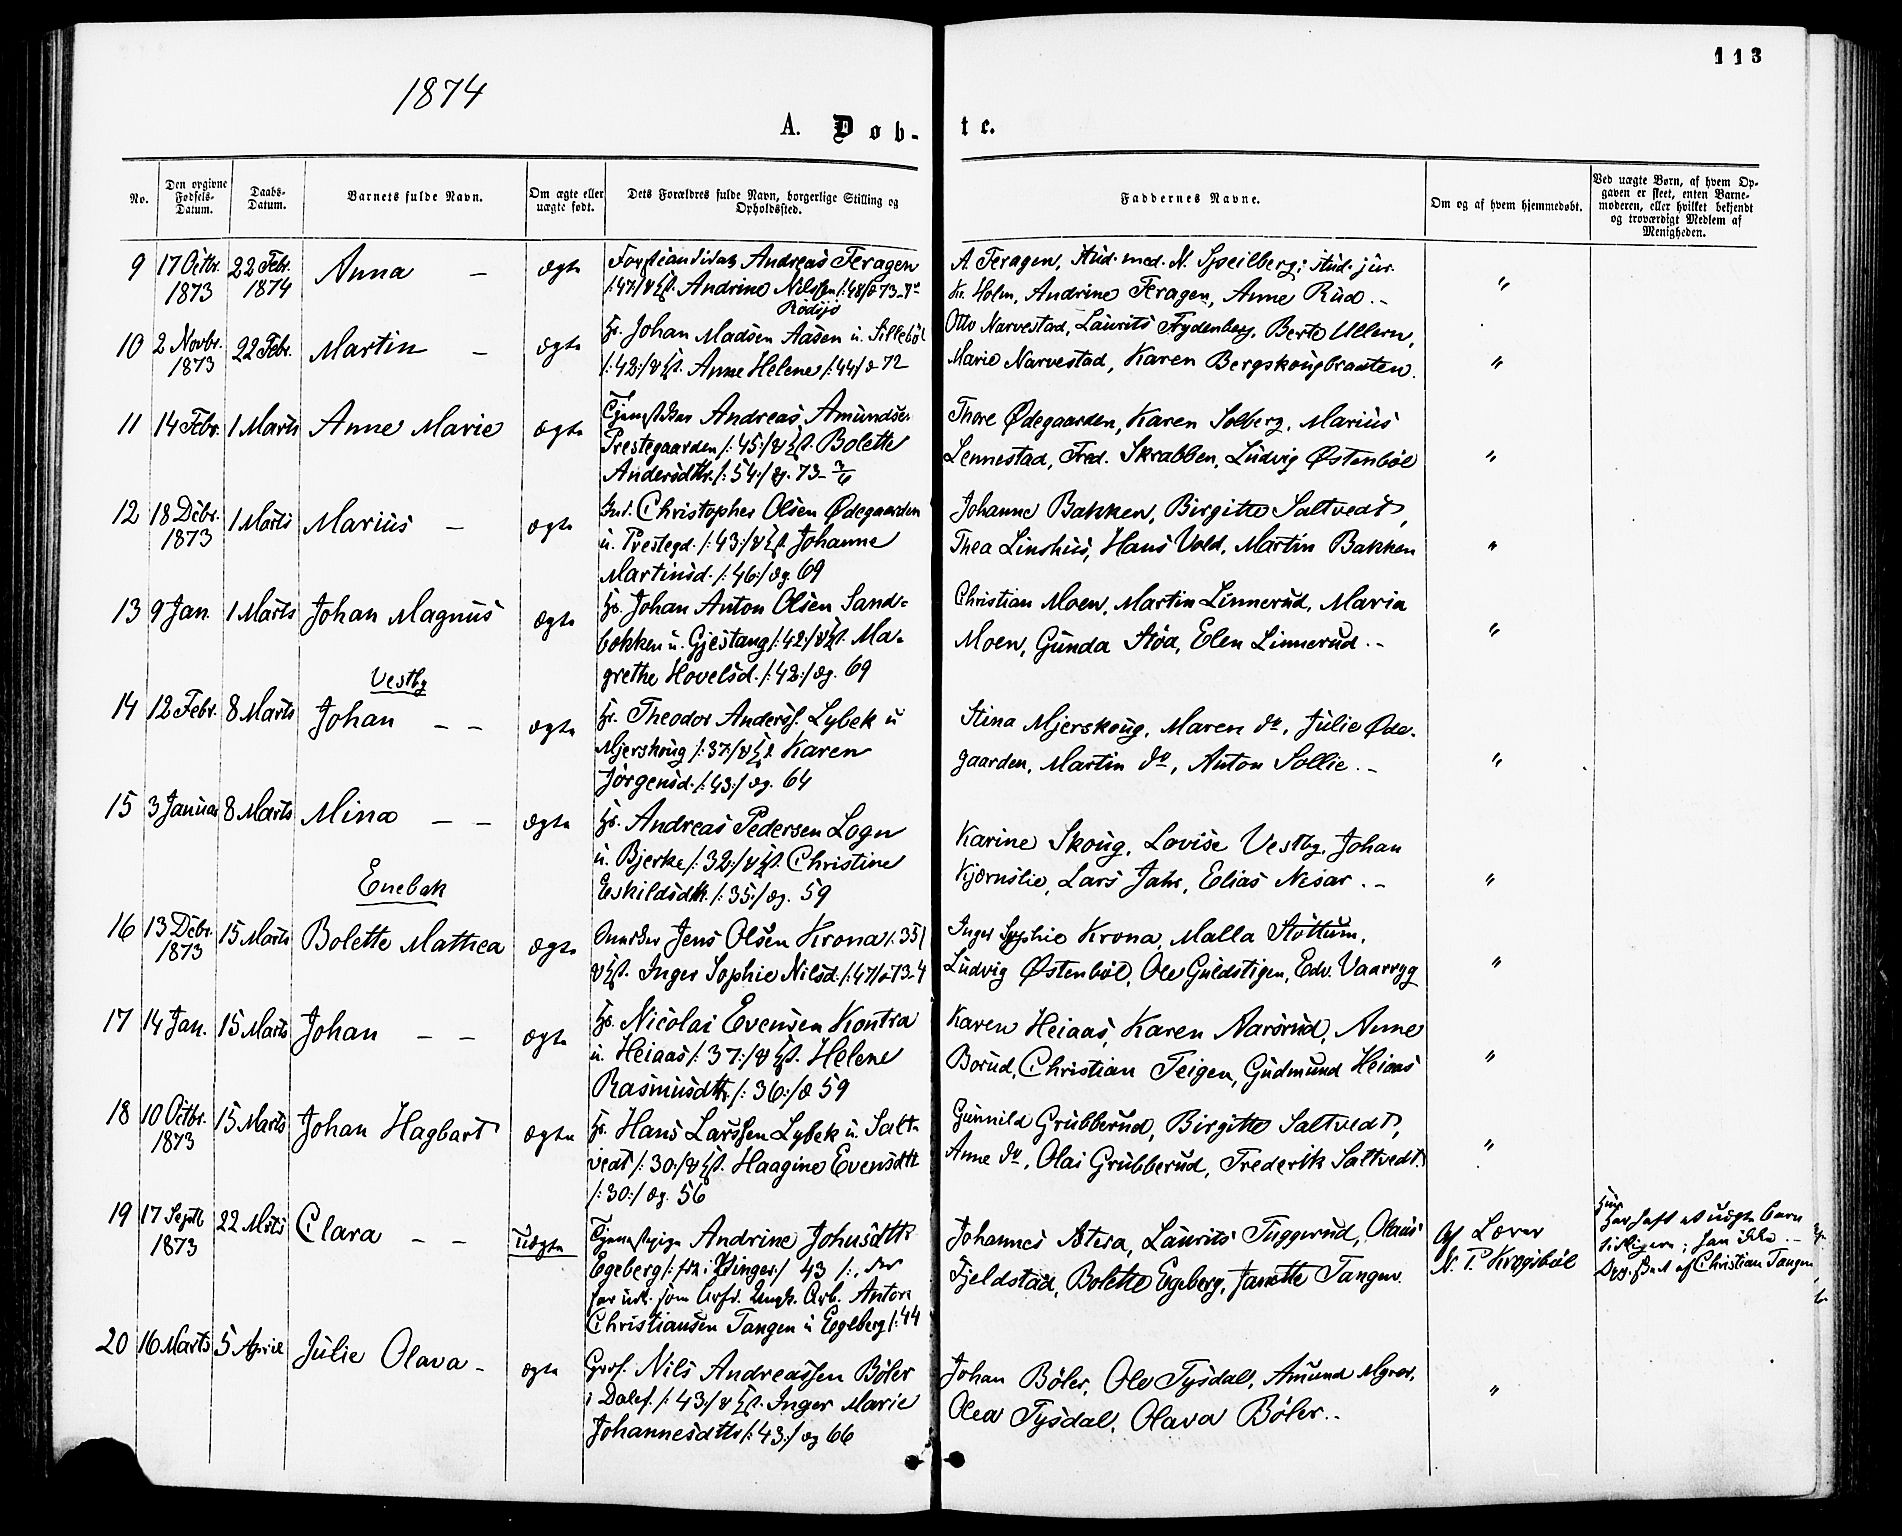 113
1874
A. Døb-
te.
No.
Den opgivne Fødsels-Datum.
Daabs-Datum.
Barnets fulde Navn.
Om ægte eller uægte født.
Dets Forældres fulde Navn, borgerlige Stilling og Opholdssted.
Faddernes Navne.
Om og af hvem hjemmedøbt.
Ved uægte Børn, af hvem Op-
gaven er skeet, enten Barne-
moderen, eller hvilket bekjendt
og troværdigt Medlem af
Menigheden.
9 17 Octbr. 1873 22 Febr. 1874 Anna — ægte
Andreas Feragen
Andrine Nilssen /:48/ æ 73
Rødsjø
A. Feragen, stud. med. N. Speilberg; stud. jur.
Kr. Holm, Andrine Feragen, Anne Rud. - "
10 2 Novbr. 1873 22 Febr. Martin — ægte
Johan Madsen Aasen u. Sillebøl
/:42:/ Anne Helene /:44/ æ 72
Otto Narvestad, Laurits Frydenberg, Berte Ullern,
Marie Narvestad, Karen Bergskougbraaten. "
11 14 Febr. 1 Marts Anne Marie ægte
Andreas Amundsen
Prestegaarden /:45:/ Bolette
Andersdtr. /:54:/ æg. 73
Thore Ødegaarden, Karen Solberg, Marius
Lennestad, Fred. Skrabben, Ludvig Østenbøl "
12 18 Debr. 1873 1 Marts Marius — ægte
Christopher Olsen Ødegaarden
u. Prestegd. /:43:/ Johanne
Martinsd. /:46:/ æg. 69
Johanne Bakken, Birgitte Saltvedt,
Thea Linshus, Hans Vold, Martin Bakken "
13 9 Jan. 1 Marts Johan Magnus ægte
Johan Anton Olsen Sand-
bakken u. Gjestang /:42/ Ma-
grethe Hovelsd. /:42:/ æg. 69
Christian Moen, Martin Linnerud, Maria
Moen, Gunda Støa, Elen Linnerud. - "
Vestby
14 12 Febr. 8 Marts Johan — — ægte
Theodor Anderss. Lybek u
Mjerskoug /:37:/ Karen
Jørgensd. /:43:/ æg. 64
Stina Mjerskoug, Maren do, Julie Øde-
gaarden, Martin do, Anton Sollie. - "
15 3 Januar 8 Marts Mina — — ægte
Andreas Pedersen Logn
u. Bjerke /:32:/ Christine
Eskildsdtr. /:35:/ æg. 59
Karine Skoug, Lovise Vestby, Johan
Kjærnslie, Lars Jahr, Elias Nesar. - "
Enebak
16 13 Debr. 1873 15 Marts Bolette Mathea ægte
Jens Olsen Krona /:35/
Inger Sophie Nilsd. /:47/ æ 73-4
Inger Sophie Krona, Malla Støttum,
Ludvig Østenbøl, Ole Guldstigen, Edv. Vaarryg "
17 14 Jan. 15 Marts Johan — — ægte
Nicolai Evensen Kontra
u. Heiaas /:37:/ Helene
Rasmusdtr. /:36:/ æ 59
Karen Heiaas, Karen Aarsrud, Anne
Borud, Christian Teigen, Gudmund Heiaas "
18 10 Octbr. 1873 15 Marts Johan Hagbart ægte
Hans Larssen Lybek u. Salt-
vedt /:30:/ Haagine Evensdtr
/:30:/ æg. 56
Gunnild Grubberud, Birgitte Saltvedt,
Anne do, Olai Grubberud, Frederik Saltvedt. "
19 17 Septb 1873 22 Mrts Clara — — uægte
Andrine Johnsdtr
Egeberg 43 /:, der
har som Anton
Christiansen Tangen u Egeberg /:44
Johannes Atera, Laurits Tuggerud, Olaus
Fjeldstad, Bolette Egeberg, Janette Tangen
Af Lærer
N. P. Krogsbøl
Hun
har haft et uægte barn
tidligere; han ikke. -
Opg. af Christian Tangen
20 16 Marts 5 April Julie Olava - ægte
Nils Andreassen Bøler
i Dalef. /:43/ Inger Marie
Johannesdtr /:43:/ æg 66
Johan Bøler, Ole Tysdal, Amund Myrer,
Olea Tysdal, Olava Bøler.. "